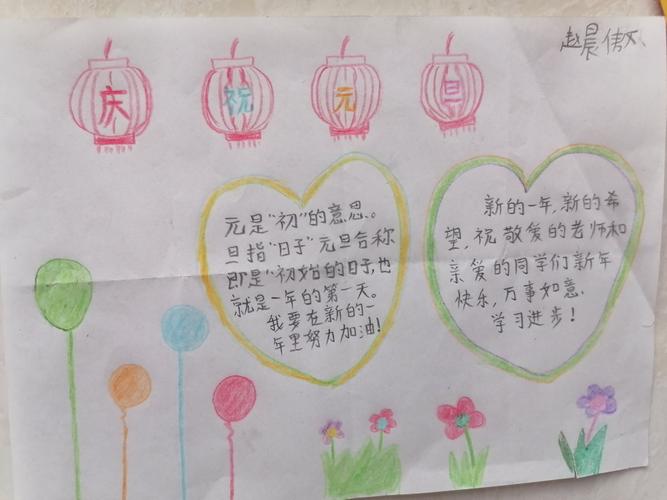 庆祝元旦
赵晨傲
元是"初"的意思。
旦指"日子"元旦合称
即是"初始的日子,也
就是一年的第一天。
我要在新的一
年里努力加油!
新的一年,新的希
望,祝敬爱的老师和
亲爱的同学们新年
快乐,万事如意,
学习进步!